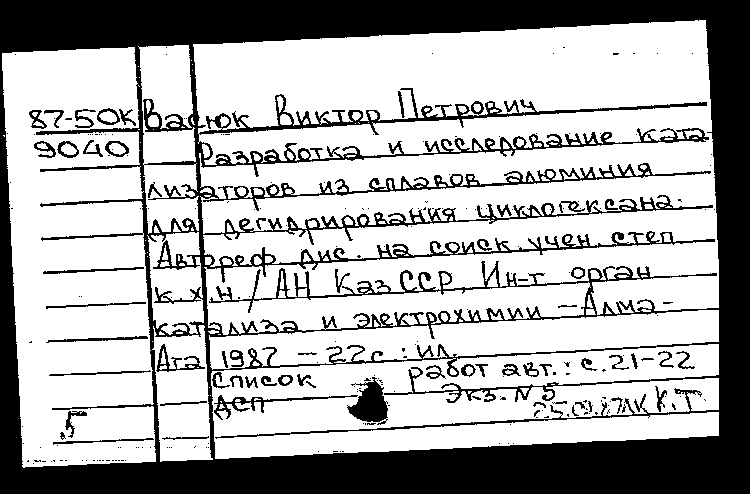 87-50К Васюк Виктор Петрович
9040 Разработка и исследование ката
лизаторов из сплавов алюминия
для дегидрирования циклогексана:
Автореф. дис. на соиск. учен. степ
к.х.н. / АН КазССР, Ин-т орган
катализа и электрохимии —Алма-
Ата 1987 — 22с : ил.
Список работ авт.: с. 21-22
ДСП Экз. N 5
5 К.Т